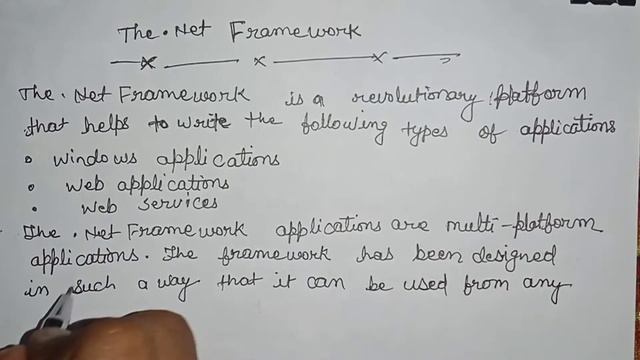 The .Net Framework
The .Net Framework is a revolutionary platform
that helps to write the following types of applications
• Windows applications
• Web applications
• Web services
The .Net Framework applications are multi-platform
applications. The framework has been designed
in such a way that it can be used from any